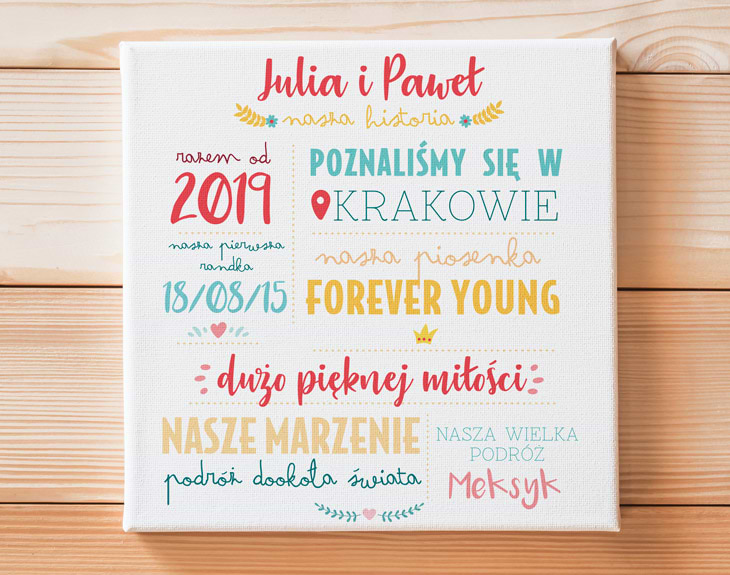 Julia i Paweł
nasza historia
razem od
2019
nasza pierwsza
randka
18/08/15
POZNALIŚMY SIĘ W
KRAKOWIE
nasza piosenka
FOREVER YOUNG
dużo pięknej miłości
NASZE MARZENIE
podróż dookoła świata
NASZA WIELKA
PODRÓŻ
Meksyk